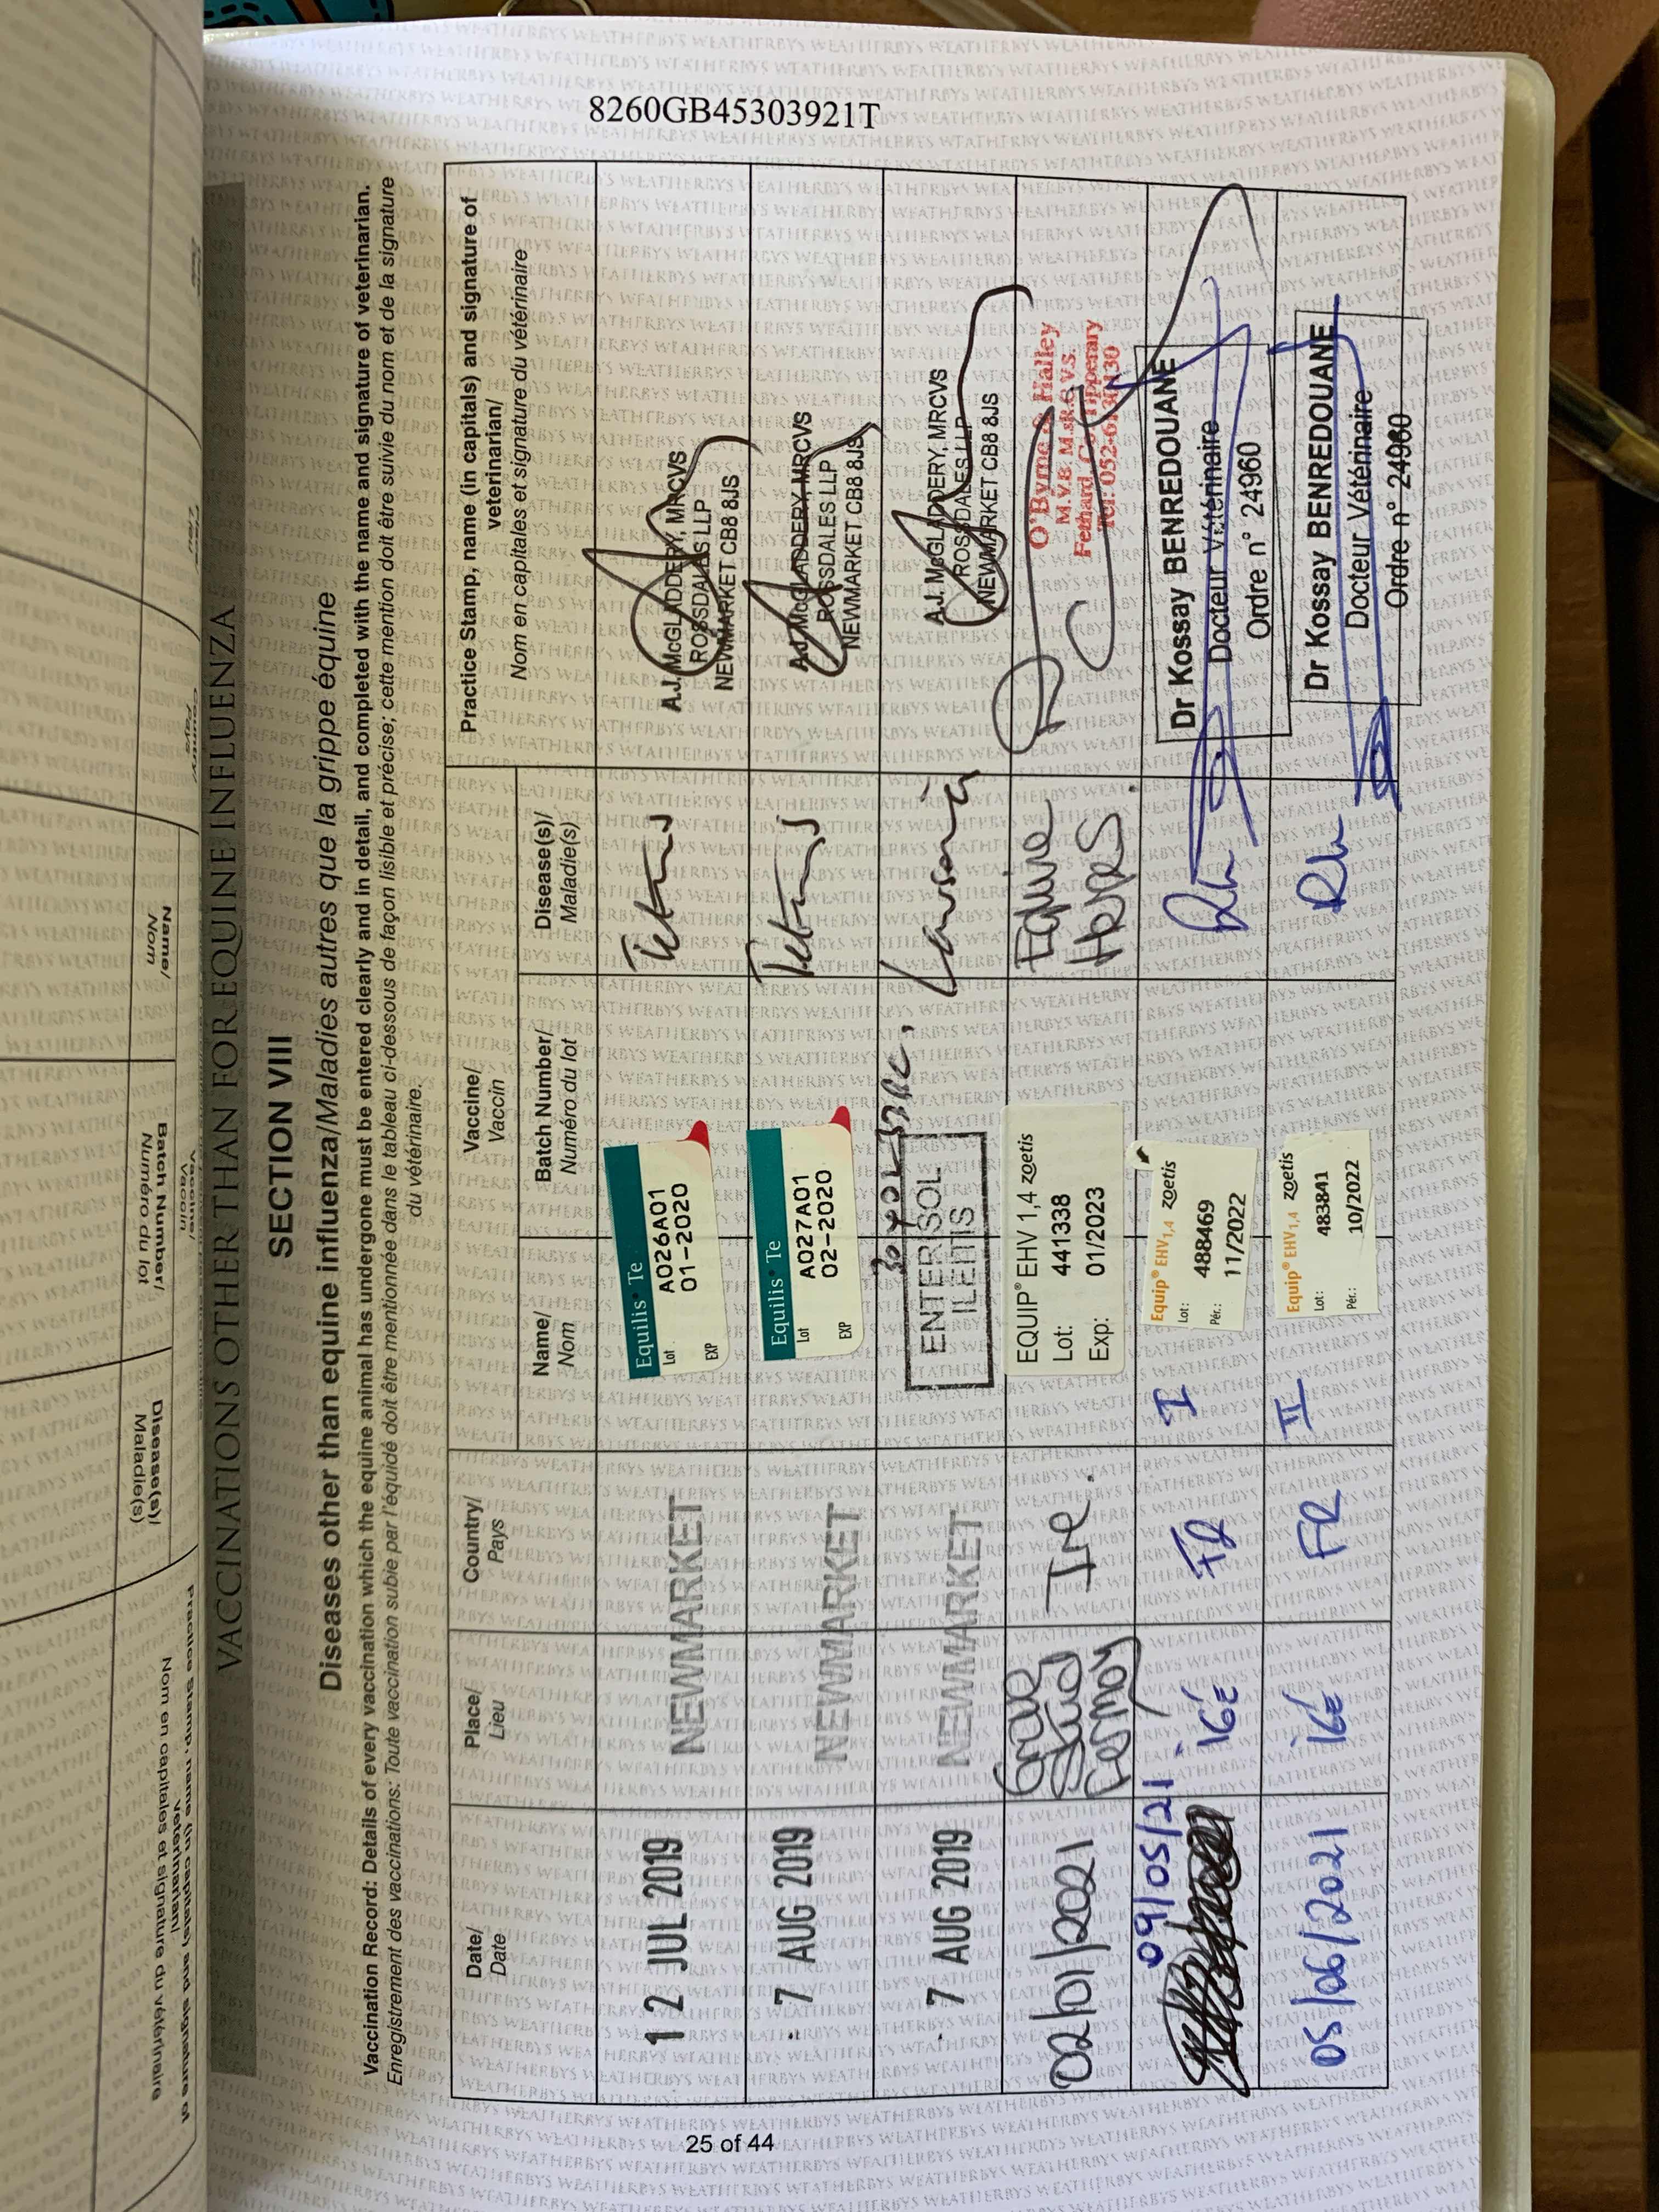 8260GB45303921T
VACCINATIONS OTHER THAN FOR EQUINE INFLUENZA
SECTION VIII
Diseases other than equine influenza/Maladies autres que la grippe équine
Vaccination Record: Details of every vaccination which the equine animal has undergone must be entered clearly and in detail, and completed with the name and signature of veterinarian.
Enregistrement des vaccinations: Toute vaccination subie par l'équidé doit être mentionnée dans le tableau ci-dessous de façon lisible et précise; cette mention doit être suivie du nom et de la signature
du vétérinaire.
Date/
Date
Place/
Lieu
Country/
Pays
Vaccine/
Vaccin
Name/
Nom
Batch Number/
Numéro du lot
Disease(s)/
Maladie(s)
Practice Stamp, name (in capitals) and signature of
veterinarian/
Nom en capitales et signature du vétérinaire
12 JUL 2019
NEWMARKET
Equilis® Te
Lot A026A01
EXP 01-2020
Tetanus
A.J. McGLADDERY, MRCVS
ROSSDALES LLP
NEWMARKET CB8 8JS
7 AUG 2019
NEWMARKET
Equilis® Te
Lot A027A01
EXP 02-2020
Tetanus
A.J. McGLADDERY, MRCVS
ROSSDALES LLP
NEWMARKET CB8 8JS
7 AUG 2019
NEWMARKET
ENTERISOL
ILEITIS
Lawsonia
A.J. McGLADDERY, MRCVS
ROSSDALES LLP
NEWMARKET CB8 8JS
02/01/2021
Grove
Stud
Fermoy
Ire.
EQUIP® EHV 1,4 zoetis
Lot: 441338
Exp: 01/2023
Equine
Herpes.
O'Byrne & Halley
M.V.B. M.R.C.V.S.
Fethard, Co. Tipperary
Tel: 052-6130130
09/05/21
IGÉ
FR
I
Equip® EHV1,4 zoetis
Lot: 488469
Pér.: 11/2022
Rh
Dr Kossay BENREDOUANE
Docteur Vétérinaire
Ordre n° 24960
05/06/2021
IGÉ
FR
II
Equip® EHV1,4 zoetis
Lot: 483841
Pér.: 10/2022
Rh
Dr Kossay BENREDOUANE
Docteur Vétérinaire
Ordre n° 24960
25 of 44
Name/
Nom
Batch Number/
Numéro du lot
Vaccine/
Vaccin
Disease(s)/
Maladie(s)
Practice Stamp, name (in capitals) and signature of
veterinarian/
Nom en capitales et signature du vétérinaire